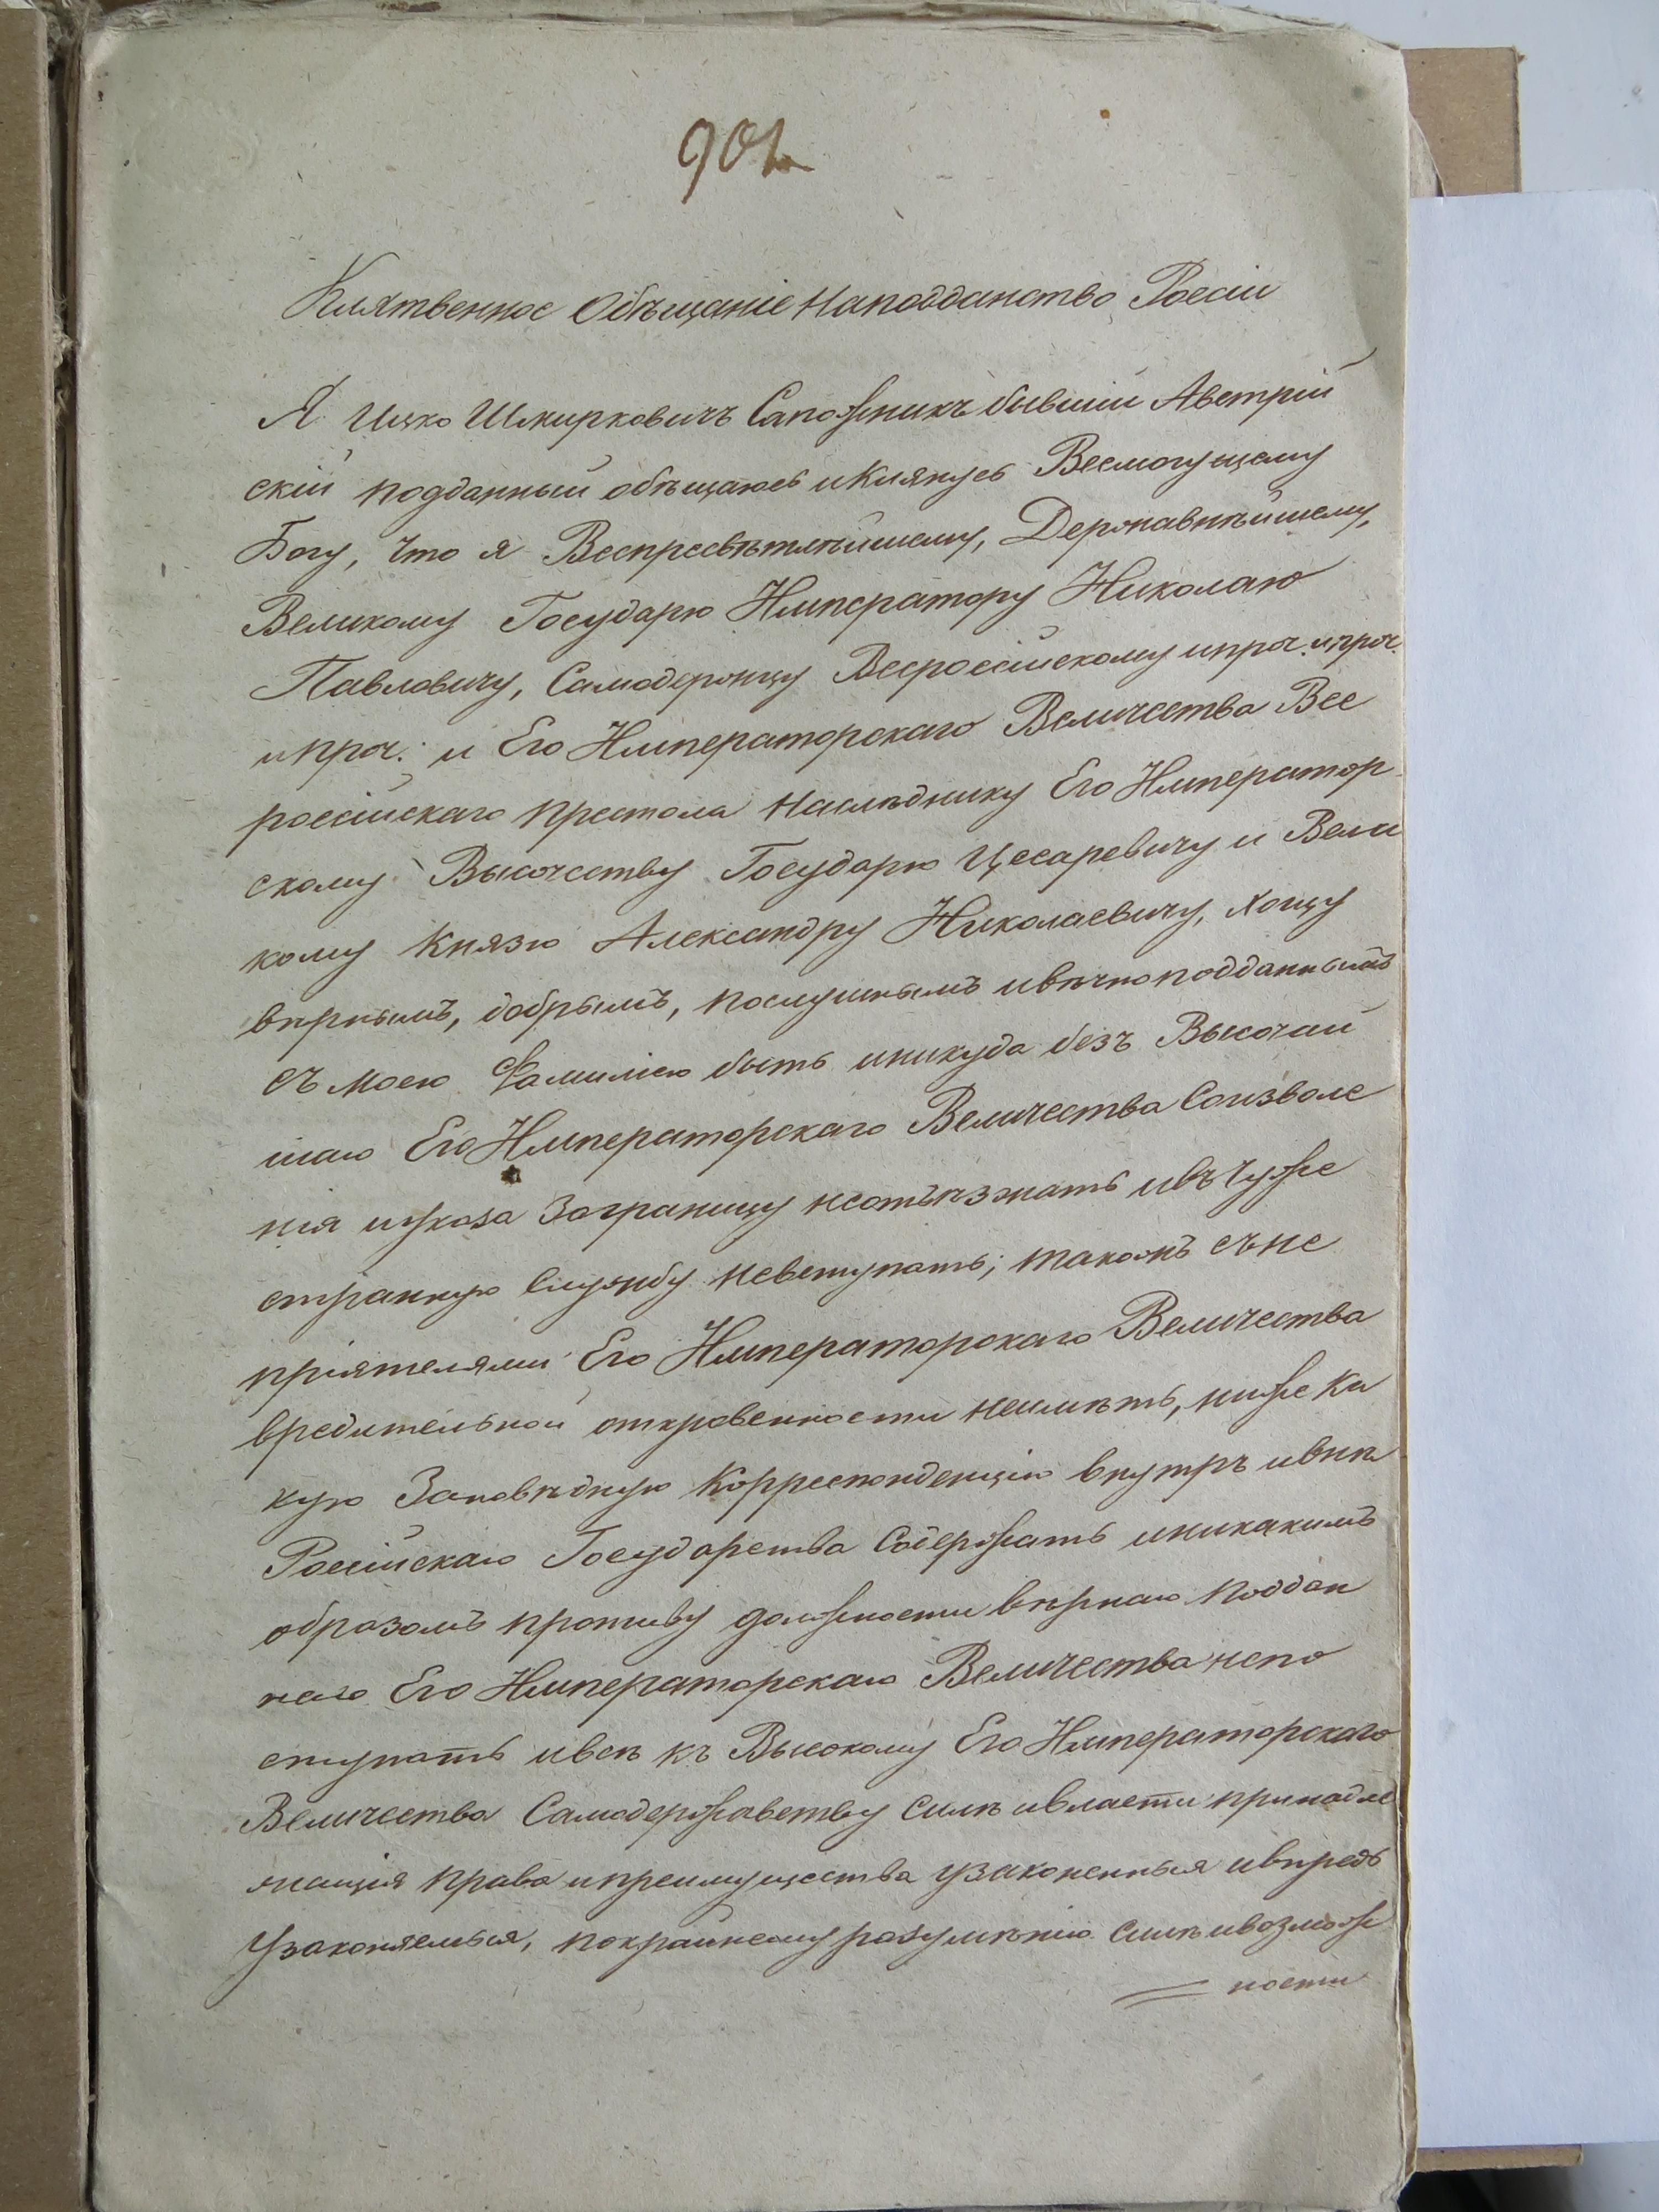 901
Клятвенное Обѣщаніе наподданство Росіи
Я Ицко Шмирковичъ Сапожникъ бывшій Австрій
скій подданный обѣщаюсь и Клянусь Всемогущему
Богу, что я Всепресвѣтлѣйшему, Державнѣйшему,
Великому Государю Императору Николаю
Павловичу, Самодержцу Всеросійскому ипроч. ипроч.
ипроч: и Его Императорскаго Величества Все
російскаго престола наслѣднику Его Император
скому Высочеству Государю Цесаревичу и Вели
кому Князю Александру Николаевичу, хощу
вѣрнымъ, добрымъ, послушнымъ ивѣчноподданнымъ
съ моею Фамиліею быть иникуда безъ Высочай
шаго Его Императорскаго Величества Соизволе
нія иуказа Заграницу неотъѣзжать ивъ Чуже
странную Службу невступать; такожъ съне
пріятелями Его Императорскаго Величества
вредительной откровенности неимѣть, ниже ка
кую Заповѣдную Корреспонденцію внутръ ивнѣ
Російскаго Государства Содержать иникакимъ
образомъ противу должности вѣрнаго поддан
наго Его Императорскаго Величества непо
ступать ивсѣ къ Высокому Его Императорскаго
Величества Самодержавству Силѣ ивласти принадле
жащія права ипреимущества узаконенныя ивпредь
Узаконяемыя, покрайнему разумѣнію Силѣ ивозмож
ности